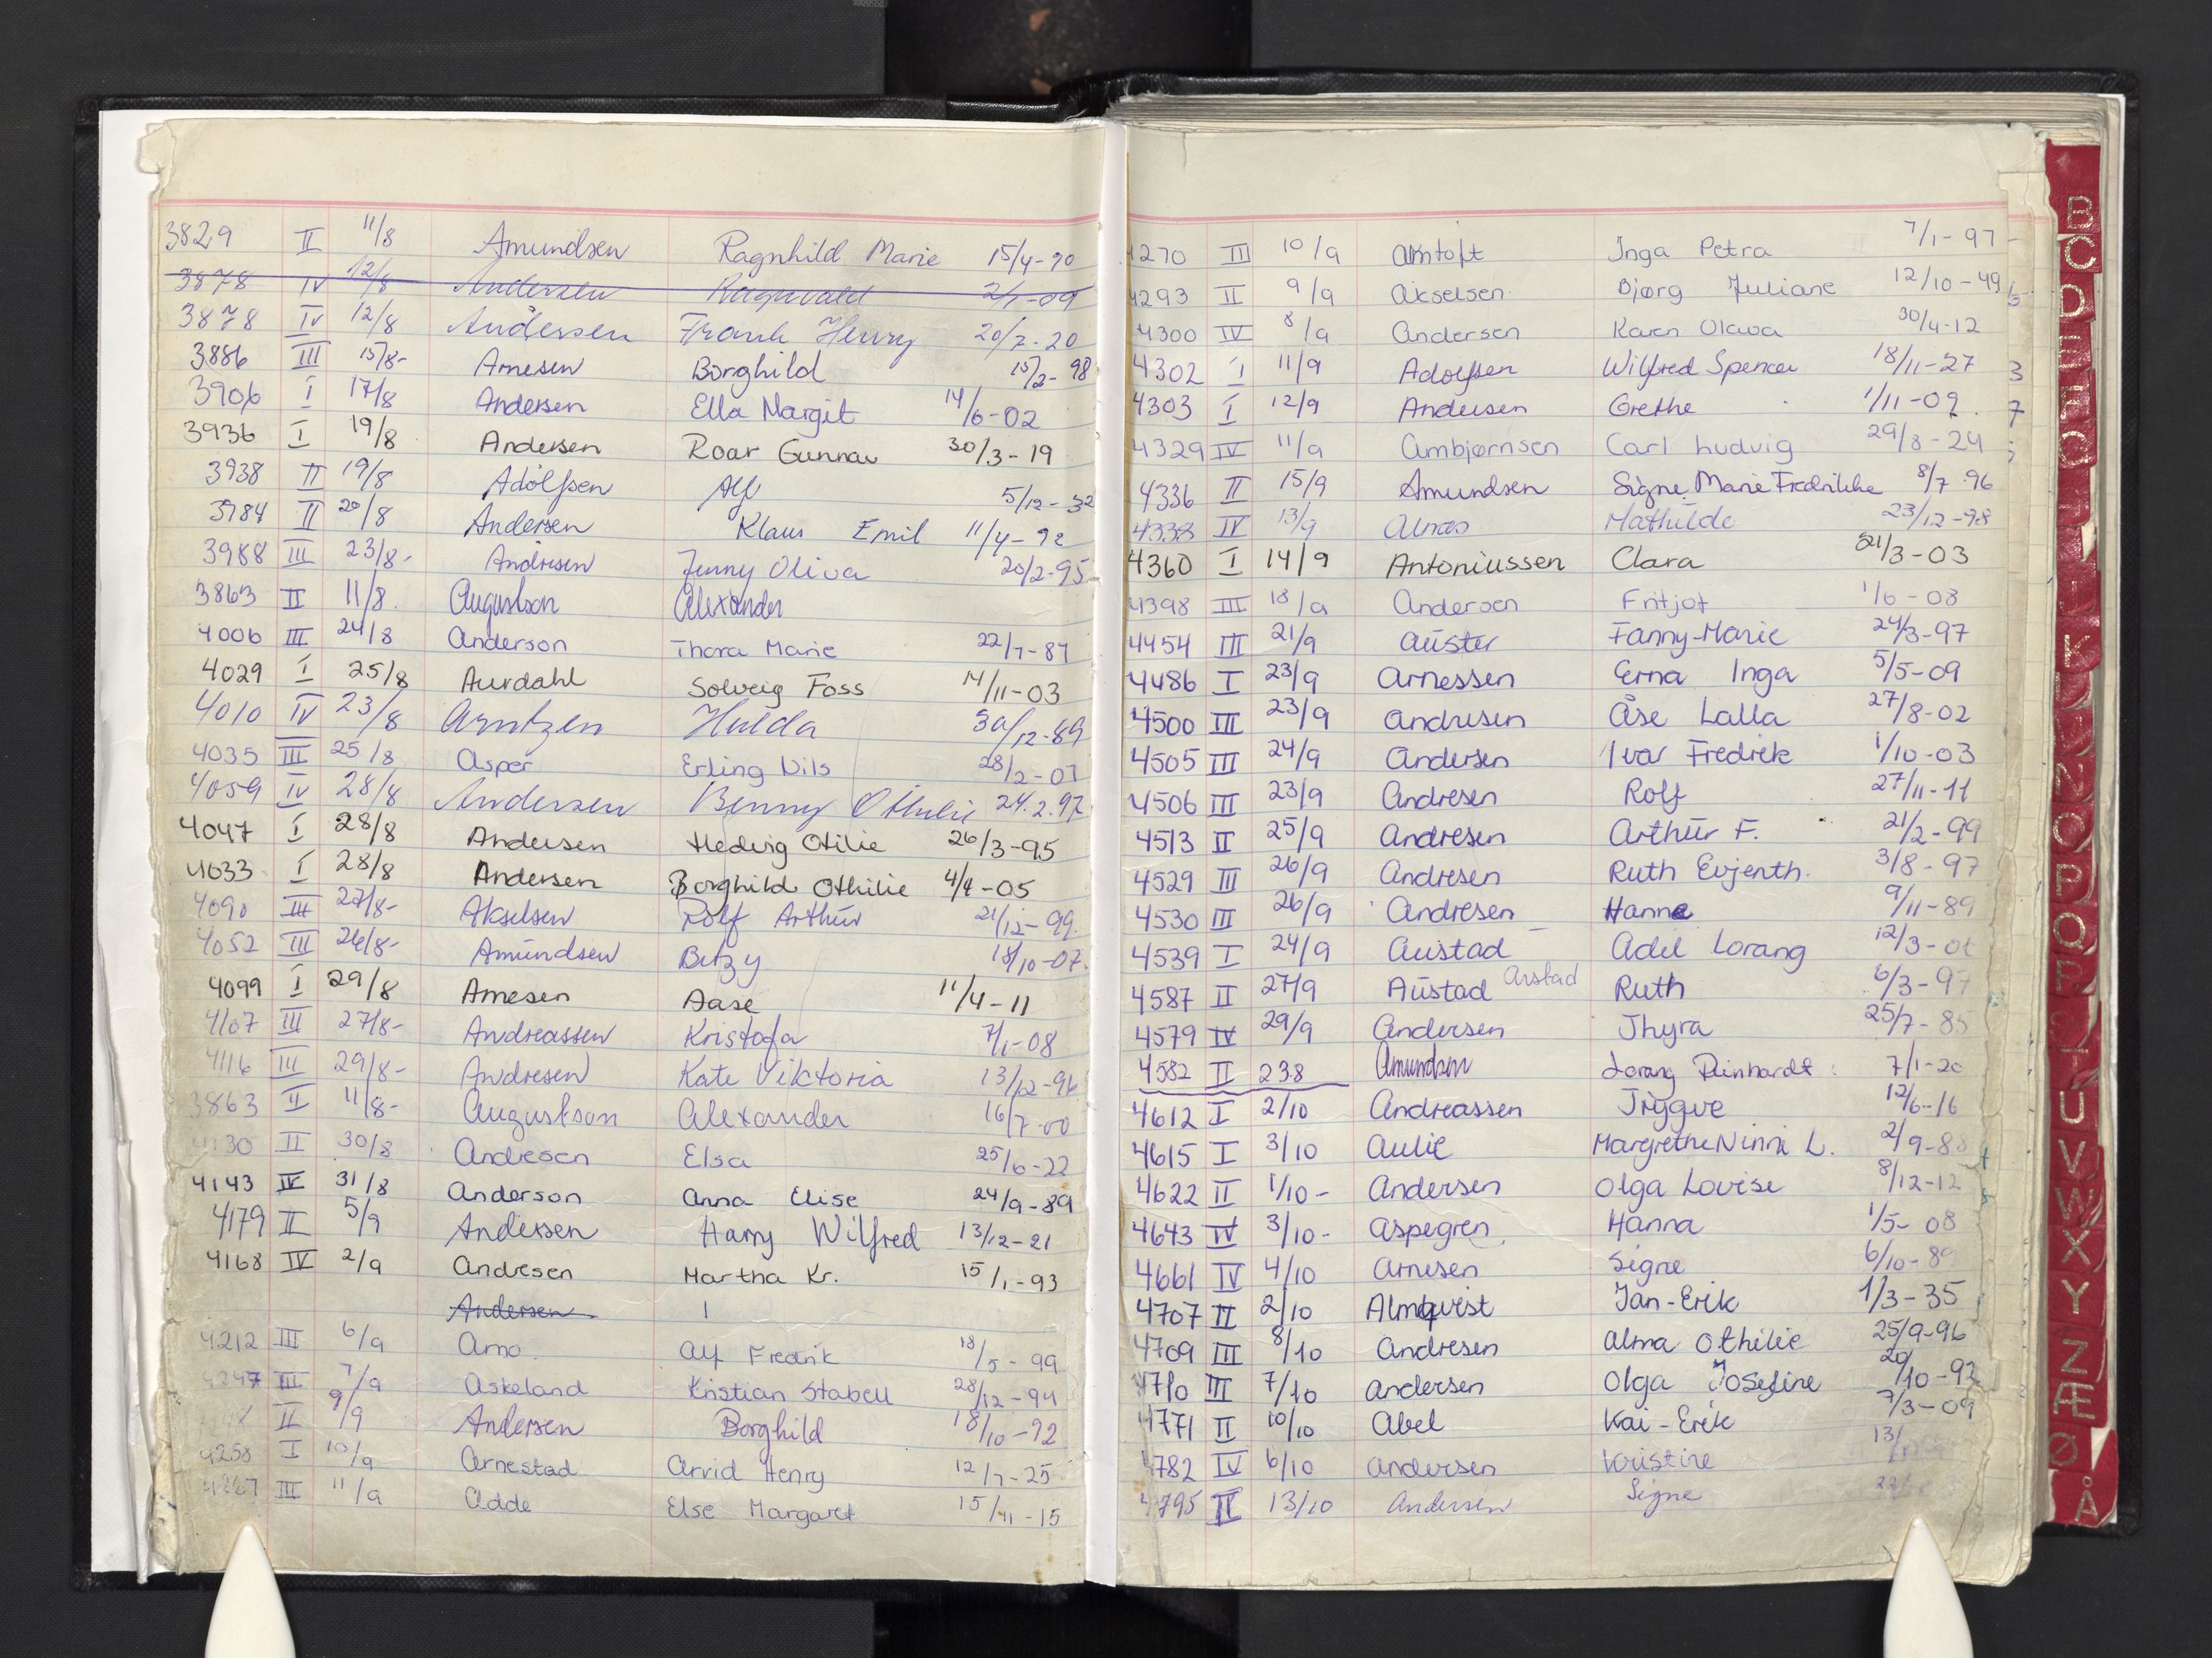 3829 II 11/8 Amundsen Ragnhild Marie 15/4-90
3878 IV 12/8 Andersen Ragnvald 2/1-09
3878 IV 12/8 Andersen Frank Henry 20/7-20
3886 III 15/8- Arnesen Borghild 15/2-98
3906 I 17/8 Andersen Ella Margit 14/6-02
3936 I 19/8 Andersen Roar Gunnar 30/3-19
3938 II 19/8 Adolfsen Alf 5/12-32
3984 II 20/8 Andersen Klaus Emil 11/4-92
3988 III 23/8- Andresen Jenny Oliva 20/2-95
3863 II 11/8. Augustson Alexander
4006 III 24/8 Anderson Thora Marie 22/7-87
4029 I 25/8 Aurdahl Solveig Foss 14/11-03
4010 IV 23/8 Arntzen Hulda 30/12-89
4035 III 25/8 Asper Erling Nils 28/2-07
4059 IV 28/8 Andersen Benny Othilie 24.2.97
4047 I 28/8 Andersen Hedvig Otilie 26/3-95
4033 I 28/8 Andersen Borghild Othilie 4/4-05
4090 III 27/8- Akselsen Rolf Arthur 21/12-99.
4052 III 26/8- Amundsen Betzy 18/10-07.
4099 I 29/8 Arnesen Aase 11/4-11
4107 III 27/8- Andreassen Kristofa 7/1-08
4116 III 29/8- Andresen Kate Viktoria 13/12-96
3863 II 11/8- Augustson Alexander 16/7-00
4130 II 30/8 Andresen Elsa 25/6-22
4143 IV 31/8 Anderson Anna Elise 24/9-89
4179 II 5/9 Andersen Harry Wilfred 13/12-21
4168 IV 2/9 Andresen Martha Kr. 15/1-93
Andersen
4212 III 6/9 Arno Alf Fredrik 18/5-99
4247 III 7/9 Askeland Kristian Stabell 28/12-94
II 9/9 Andersen Borghild 18/10-92
4258 I 10/9 Arnestad Arvid Henry 12/7-25
4267 III 11/9 Adde Else Margaret 15/11-15
4270 III 10/9 Arntoft Inga Petra 7/1-97
4293 II 9/9 Akselsen Bjørg Juliane 12/10-49
4300 IV 8/9 Andersen Karen Olava 30/4-12
4302 I 11/9 Adolfsen Wilfred Spencer 18/11-27
4303 I 12/9 Andersen Grethe 1/11-09.
4329 IV 11/9 Ambjørnsen Carl Ludvig 29/8-24
4336 II 15/9 Amundsen Signe Marie Fredrikke 8/7-96
4338 IV 13/9 Alnæs Mathilde 23/12-98
4360 I 14/9 Antoniussen Clara 21/3-03
4398 III 18/9 Andersen Fritjof 1/6-08
4454 III 21/9 Auster Fanny-Marie 24/3-97
4486 I 23/9 Arnessen Erna Inga 5/5-09
4500 III 23/9 Andresen Åse Lalla 27/8-02
4505 III 24/9 Andersen Ivar Fredrik 1/10-03
4506 III 23/9 Andresen Rolf 27/11-11
4513 II 25/9 Andresen Arthur F. 21/2-99
4529 III 26/9 Andresen Ruth Evjenth. 3/8-97
4530 III 26/9 Andresen Hanne 9/11-89
4539 I 24/9 Austad Adel Lorang 12/3-01
4587 II 27/9 Austad Arstad Ruth 6/3-97
4579 IV 29/9 Andersen Thyra 25/7-85
4582 II 23.8 Amundsen Lorang Reinhardt 7/1-20
4612 I 2/10 Andreassen Trygve 12/6-16
4615 I 3/10 Aulie Margrethe Ninni L. 2/9-88
4622 II 1/10- Andersen Olga Lovise 8/12-12
4643 IV 3/10- Aspegren Hanna 1/5-08
4661 IV 4/10 Arnesen Signe 6/10-89
4707 II 2/10 Almqvist Jan-Erik 1/3-35
4709 III 8/10 Andresen Alma Othilie 25/9-96
4710 III 7/10 Andersen Olga Josefine 20/10-92
4771 II 10/10 Abel Kai-Erik 7/3-09
4782 IV 6/10 Andersen Kristine 13/
4795 II 13/10 Andersen Signe
B
C
D
E
F
G
H
I
K
L
N
O
P
Q
R
T
U
V
W
X
Y
Z
Æ
Ø
Å